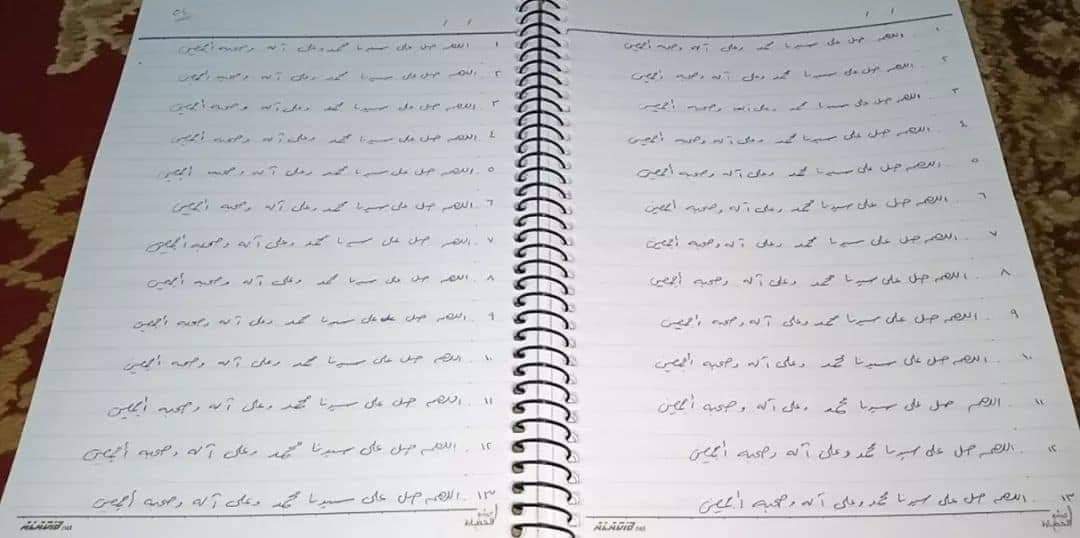 ١ اللهم صل على سيدنا محمد وعلى آله وصحبه أجمعين
٢ اللهم صل على سيدنا محمد وعلى آله وصحبه أجمعين
٣ اللهم صل على سيدنا محمد وعلى آله وصحبه أجمعين
٤ اللهم صل على سيدنا محمد وعلى آله وصحبه أجمعين
٥ اللهم صل على سيدنا محمد وعلى آله وصحبه أجمعين
٦ اللهم صل على سيدنا محمد وعلى آله وصحبه أجمعين
٧ اللهم صل على سيدنا محمد وعلى آله وصحبه أجمعين
٨ اللهم صل على سيدنا محمد وعلى آله وصحبه أجمعين
٩ اللهم صل على سيدنا محمد وعلى آله وصحبه أجمعين
١٠ اللهم صل على سيدنا محمد وعلى آله وصحبه أجمعين
١١ اللهم صل على سيدنا محمد وعلى آله وصحبه أجمعين
١٢ اللهم صل على سيدنا محمد وعلى آله وصحبه أجمعين
١٣ اللهم صل على سيدنا محمد وعلى آله وصحبه أجمعين
١ اللهم صل على سيدنا محمد وعلى آله وصحبه أجمعين
٢ اللهم صل على سيدنا محمد وعلى آله وصحبه أجمعين
٣ اللهم صل على سيدنا محمد وعلى آله وصحبه أجمعين
٤ اللهم صل على سيدنا محمد وعلى آله وصحبه أجمعين
٥ اللهم صل على سيدنا محمد وعلى آله وصحبه أجمعين
٦ اللهم صل على سيدنا محمد وعلى آله وصحبه أجمعين
٧ اللهم صل على سيدنا محمد وعلى آله وصحبه أجمعين
٨ اللهم صل على سيدنا محمد وعلى آله وصحبه أجمعين
٩ اللهم صل على على سيدنا محمد وعلى آله وصحبه أجمعين
١٠ اللهم صل على سيدنا محمد وعلى آله وصحبه أجمعين
١١ اللهم صل على سيدنا محمد وعلى آله وصحبه أجمعين
١٢ اللهم صل على سيدنا محمد وعلى آله وصحبه أجمعين
١٣ اللهم صل على سيدنا محمد وعلى آله وصحبه أجمعين